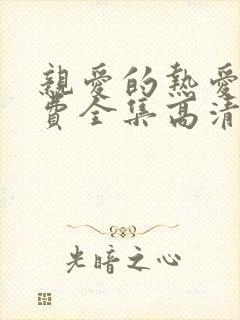 親愛的熱愛
費全集高清
光暗之心